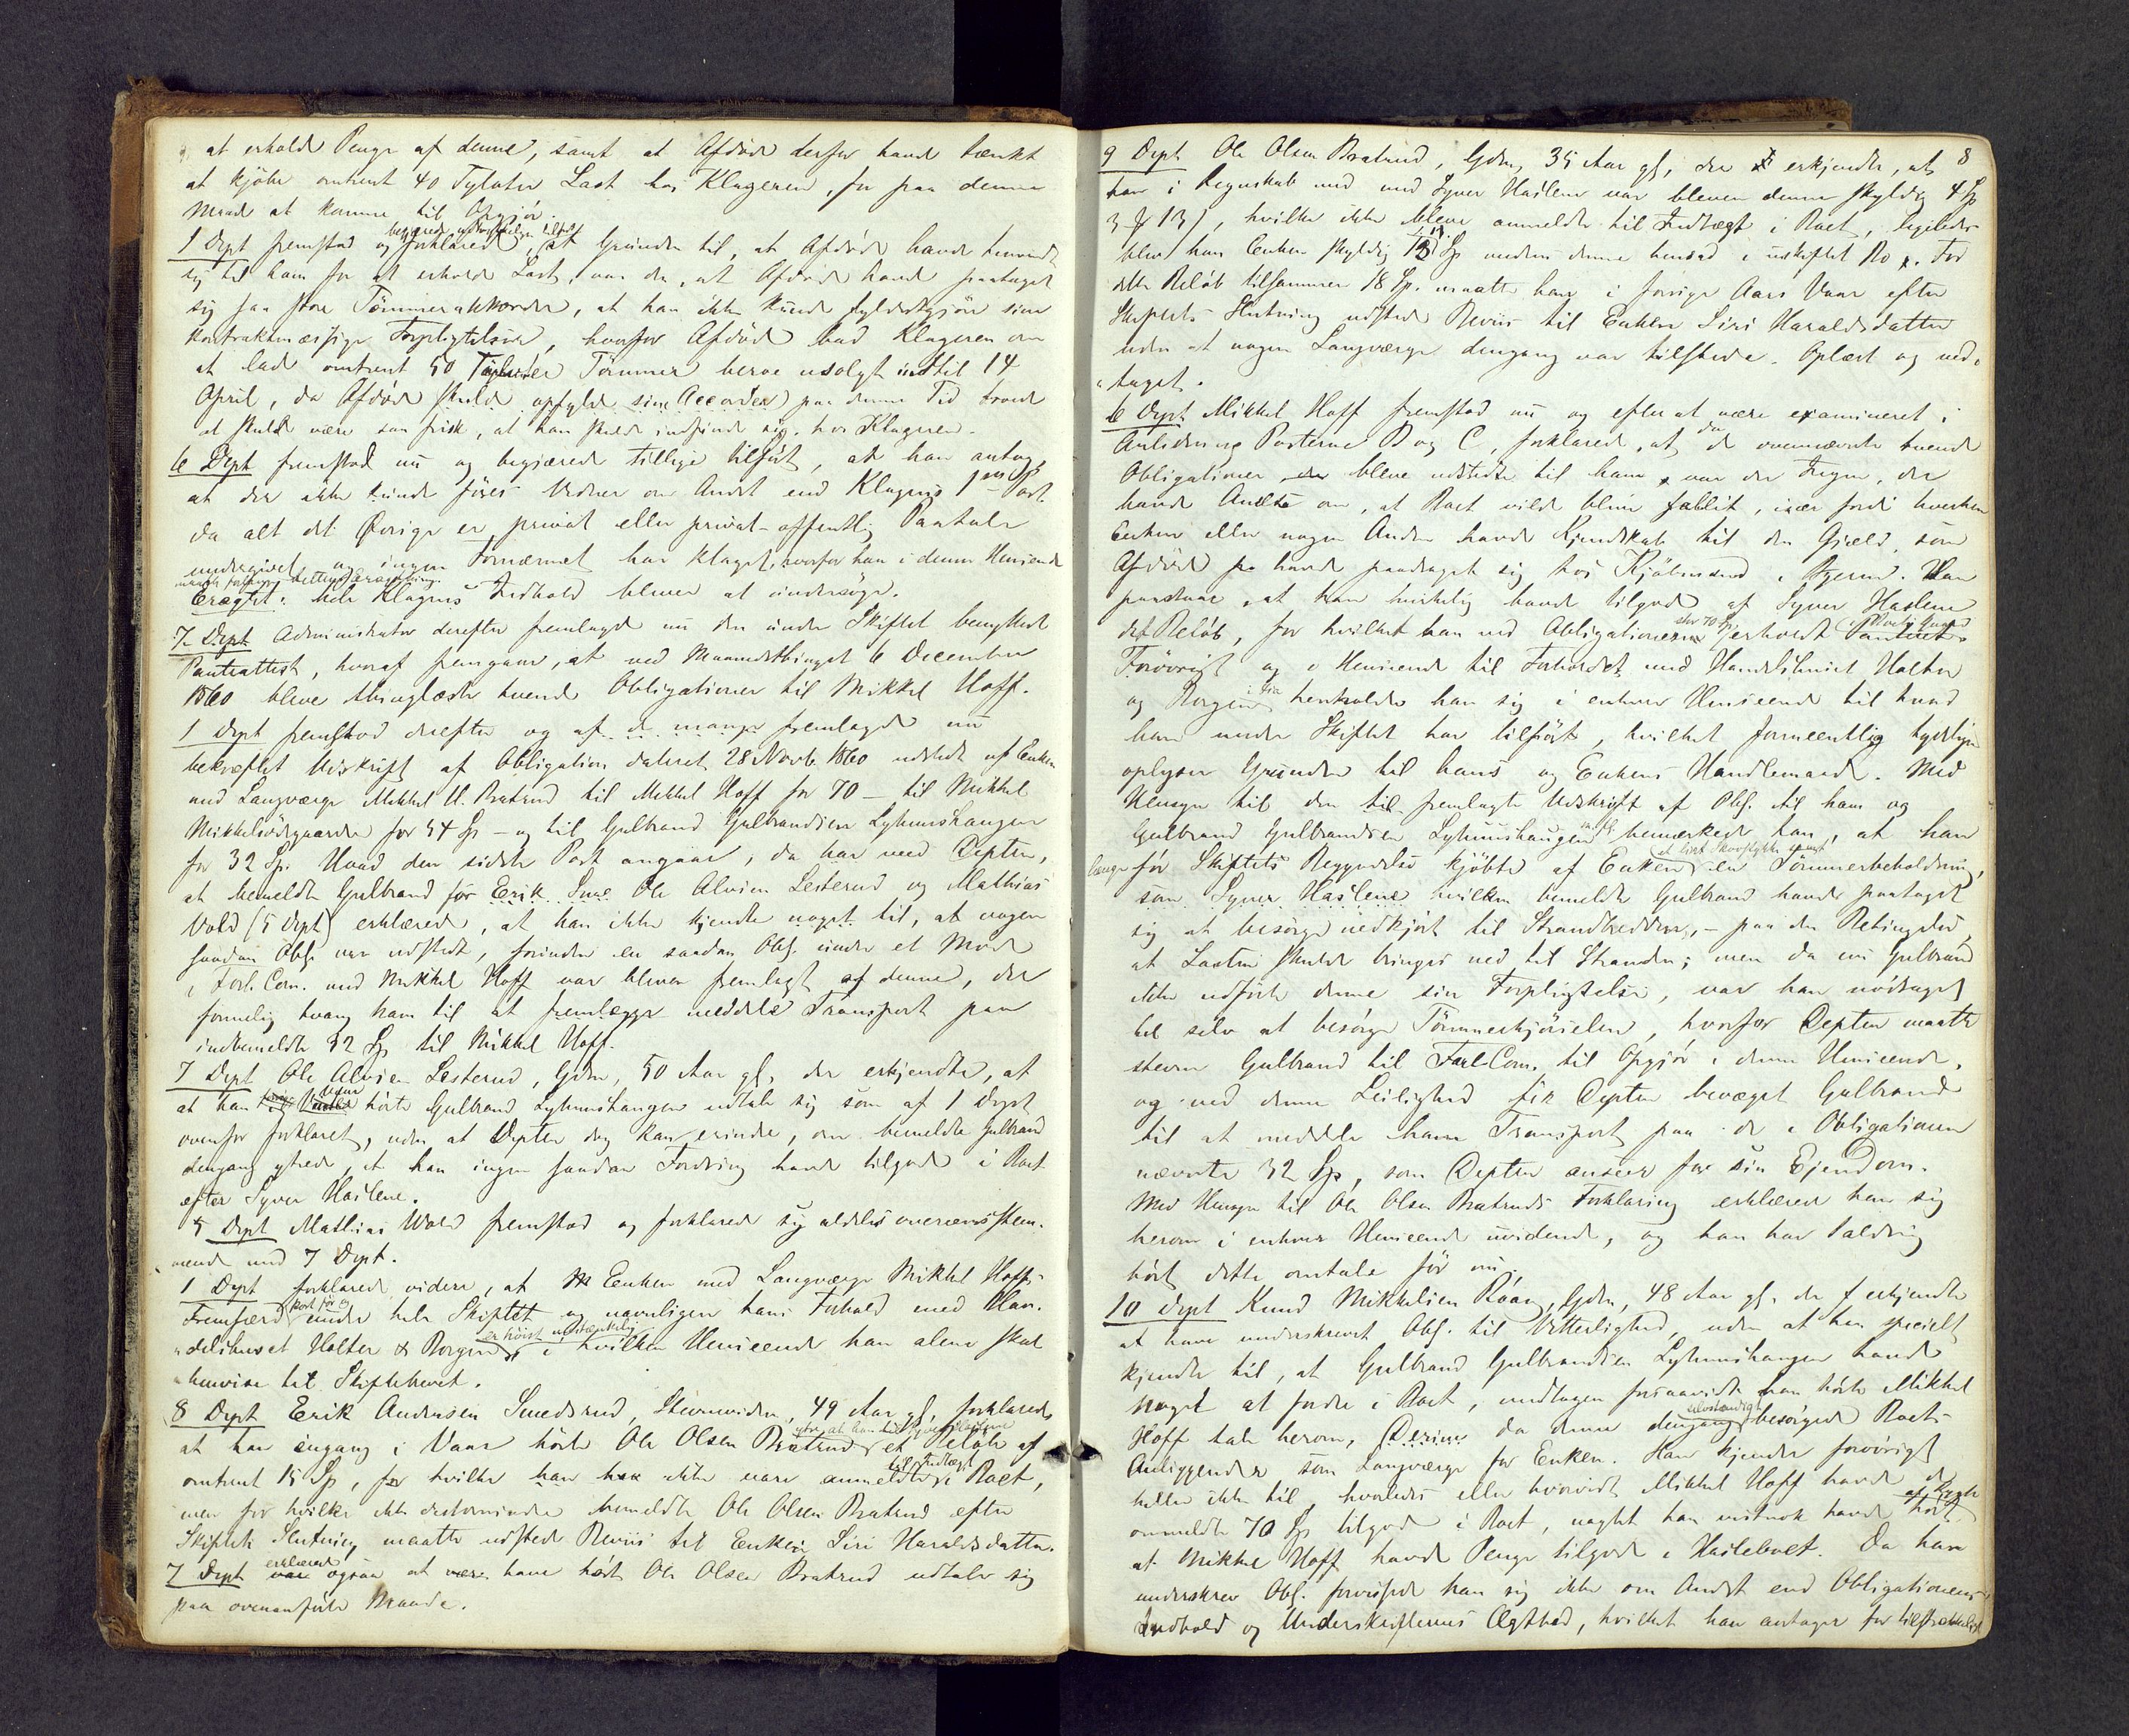 at erholde Penge af denne, samt at Afdøde derfor havde tænkt
at kjöbe omtrent 40 Tylvter Last hos Klageren, for paa denne
Maade at komme til Opgjör.
begjærede udtrykkelig tilfört
1 Dept fremstod og forklarede, at Grunden til, at Afdøde havde henvendt
sig til ham for at erholde Last, var den, at Afdøde havde paataget
sig saa store Tömmerakkorder, at han ikke kunde fyldestgjöre sine
kontraktmæssige Forpligtelser, hvorfor Afdøde bad Klageren om
at lade omtrent 50 Tylvter Tömmer bero usolgt indtil 14
April, da Afdøde skulde opfylde sine Accorder) paa denne Tid troede
at skulde være saa frisk, at han skulde indfinde sig hos Klageren.
6 Dept fremstod nu og begjærede tillige tilfört, at han antog,
at der ikke kunde föres Vidner om Andet end Klagens 1ste Post,
da alt det Øvrige er privat eller privat-offentlig Paatale
undergivet og ingen Fornærmet har klaget, hvorfor han i denne Henseende
Eragtet: hele Klagens Indhold bliver at undersöge.
7 Dept Administrator derefter fremlagde nu den under Skiftet benyttede
Panteattest, hvoraf fremgaar, at ved Maanedsthinget 6 December
1860 bleve thinglæste tvende Obligationer til Mikkel Hoff.
1 Dept fremstod derefter og af de mange fremlagde nu
bekræftet Udskrift af Obligation dateret 28 Novb. 1860 udstedt af Enken
med Laugværge Mikkel H. Bratrud til Mikkel Hoff for 70 – til Mikkel
Mikkelsödegaarden for 54 Sp – og til Gulbrand Gulbrandsen Lyhmshaugen
for 32 Sp. Hvad den sidste Post angaar, da har med Depten,
at bemeldte Gulbrand for Erik Smed Ole Alvsen Lesterud og Mathias
Vold (5 Dept) erklærede, at han ikke kjendte noget til, at nogen
saadan Obl. var udstedt, forinden en saadan Obl. under et Möde
i Forl. Com. med Mikkel Hoff var bleven fremlagt af denne, der
formelig tvang ham til at fremlægge meddele Transport paa
indbemeldte 32 Sp til Mikkel Hoff.
7 Dept Ole Alvsen Lesterud, Gdm, 50 Aar gl, der erkjendte, at
at han hörte Gulbrand Lyhmshaugen udtale sig som af 1 Dept
ovenfor forklaret, uden at Depten dog kan erindre, om bemeldte Gulbrand
dengang ytrede, at han ingen saadan Fordring havde tilgode i Boet
efter Syver Haslene.
5 Dept Mathias Wold fremstod og forklarede sig aldeles overensstem-
mende med 7 Dept.
1 Dept forklarede videre, at Enken med Laugværge Mikkel Hoffs
Fremfærd under hele Skiftet og navnligen hans Forhold med Han-
er höist mistænkelig
delshuset Holter & Borgen i hvilken Henseende han alene skal
henvise til Skiftebrevet.
8 Dept Erik Andersen Smedsrud, Stevnevidne, 49 Aar gl, forklarede
at han engang i Vaar hörte Ole Olsen Bratrud et Beløb af
til Indtægt
omtrent 15 Sp, for hvilke han ikke være anmeldte i Boet,
men for hvilke ikke destomindre bemeldte Ole Olsen Bratrud efter
Skiftets Slutning maatte udstede Beviis til Enken Siri Haraldsdatter.
erklærede
7 Dept var ogsaa at være have hört Ole Olsen Bratrud udtale sig
paa ovenanførte Maade.
8
9 Dept Ole Olsen Bratrud, Gdm, 35 Aar gl, der erkjendte, at
han i Regnskab med med Syver Haslene var bleven denne skyldig 4 Sp
3 13, hvilke ikke bleve anmeldte til Indtægt i Boet, ligeledes
blev han Enken skyldig 13 Sp medens denne hensad i uskiftet Bo. For
dette Beløb tilsammen 18 Sp. maatte han i forrige Aars Vaar efter
Skiftets Slutning udstede Beviis til Enken Siri Haraldsdatter
uden at nogen Laugværge dengang var tilstede. Oplæst og ved-
taget.
6 Dept Mikkel Hoff fremstod nu og efter at være examineret i
Anledning Posterne B og C, forklarede, at da de ovennævnte tvende
Obligationer bleve udstedte til ham, var der Ingen, der
havde Anelse om, at Boet vilde blive fallit, især fordi hverken
Enken eller nogen Anden havde Kjendskab til den Gjæld, som
Afdøde havde paadraget sig hos Kjöbmænd i Byerne. Han
paastaar, at han virkelig havde tilgode af Syver Haslene
det Beløb, for hvilket han ved Obligationerne erholdt Panteret.
Forövrigt og i Henseende til Forholdet med Handelshuset Holter
og Borgen henholder han sig i enhver Henseende til hvad
han under Skiftet har tilfört, hvilket formeentlig tydeligen
oplyser Grunden til hans og Enkens Handlemaade. Med
Hensyn til den fremlagte Udskrift af Obl. til ham og
Gulbrand Gulbrandsen Lyhmshaugen bemærkede han, at han
længe för Skiftets Begyndelse kjöbte af Enken en Tömmerbeholdning,
som Syver Haslene hvilken bemeldte Gulbrand havde paataget
sig at besörge nedkjört til Strandbredden, – paa den Betingelse,
at Lasten skulde bringes ned til Stranden; men da nu Gulbrand
ikke udførte denne sin Forpligtelse, var han nödsaget
til selv at besörge Tömmerkjörselen, hvorfor Depten maatte
stevne Gulbrand til Forl. Com. til Opgjör i denne Henseende,
og ved denne Leilighed fik Depten bevæget Gulbrand
til at meddele ham Transport paa de i Obligationen
nævnte 32 Sp, som Depten anseer for sin Ejendom.
Med Hensyn til Ole Olsen Bratruds Forklaring erklærede han sig
herom i enhver Henseende uvidende, og han har aldrig
hört dette omtale för nu.
10 Dept Knud Mikkelsen Roan, Gdm, 48 Aar gl, der erkjendte
at have underskrevet Obl. til Vitterlighed, uden at han specielt
kjendte til, at Gulbrand Gulbrandsen Lyhmshaugen havde
noget at fordre i Boet, undtagen forsaavidt han hörte Mikkel
Hoff tale herom, da denne dengang besörgede Boets
Anliggender som Laugværge for Enken. Han kjendte forövrigt
heller ikke til, hvorledes eller hvorvidt Mikkel Hoff havde de
ommeldte 70 Sp tilgode i Boet, uagtet han vistnok havde hört
at Mikkel Hoff havde Penge tilgode i Hasleboet. Da han
underskrev Obl. forvissede han sig ikke om Andet end Obligationens
Indhold og Underskrifternes Ægthed, hvilket han antager for tilstrækkeligt